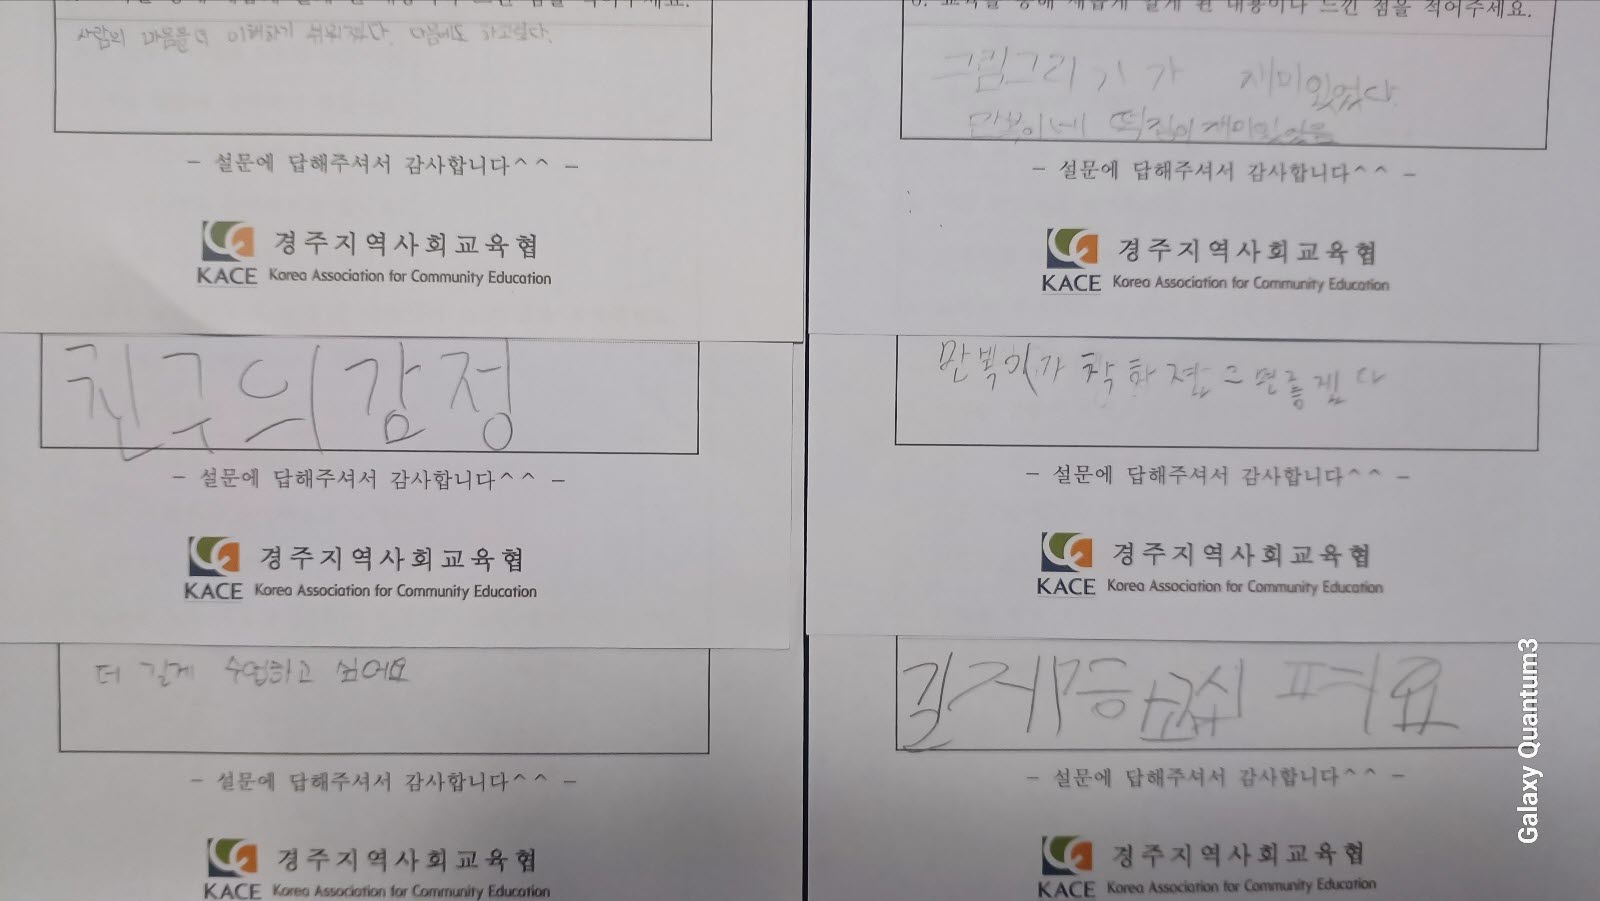 사람의 마음을 더 이해하기 쉬워졌다. 다음에도 하고싶다.
- 설문에 답해주셔서 감사합니다^^ -
경주지역사회교육협
KACE Korea Association for Community Education
6. 교육을 통해 새롭게 알게 된 내용이나 느낀 점을 적어주세요.
그림그리기가 재미있었다.
만복이네 떡집이 재미있었음
- 설문에 답해주셔서 감사합니다^^ -
경주지역사회교육협
KACE Korea Association for Community Education
친구의감정
- 설문에 답해주셔서 감사합니다^^ -
경주지역사회교육협
KACE Korea Association for Community Education
만복이가 착
- 설문에 답해주셔서 감사합니다^^ -
경주지역사회교육협
KACE Korea Association for Community Education
더 길게 수업하고 싶어요
- 설문에 답해주셔서 감사합니다^^ -
경주지역사회교육협
KACE Korea Association for Community Education
- 설문에 답해주셔서 감사합니다^^ -
경주지역사회교육협
KACE Korea Association for Community Education
Galaxy Quantum3